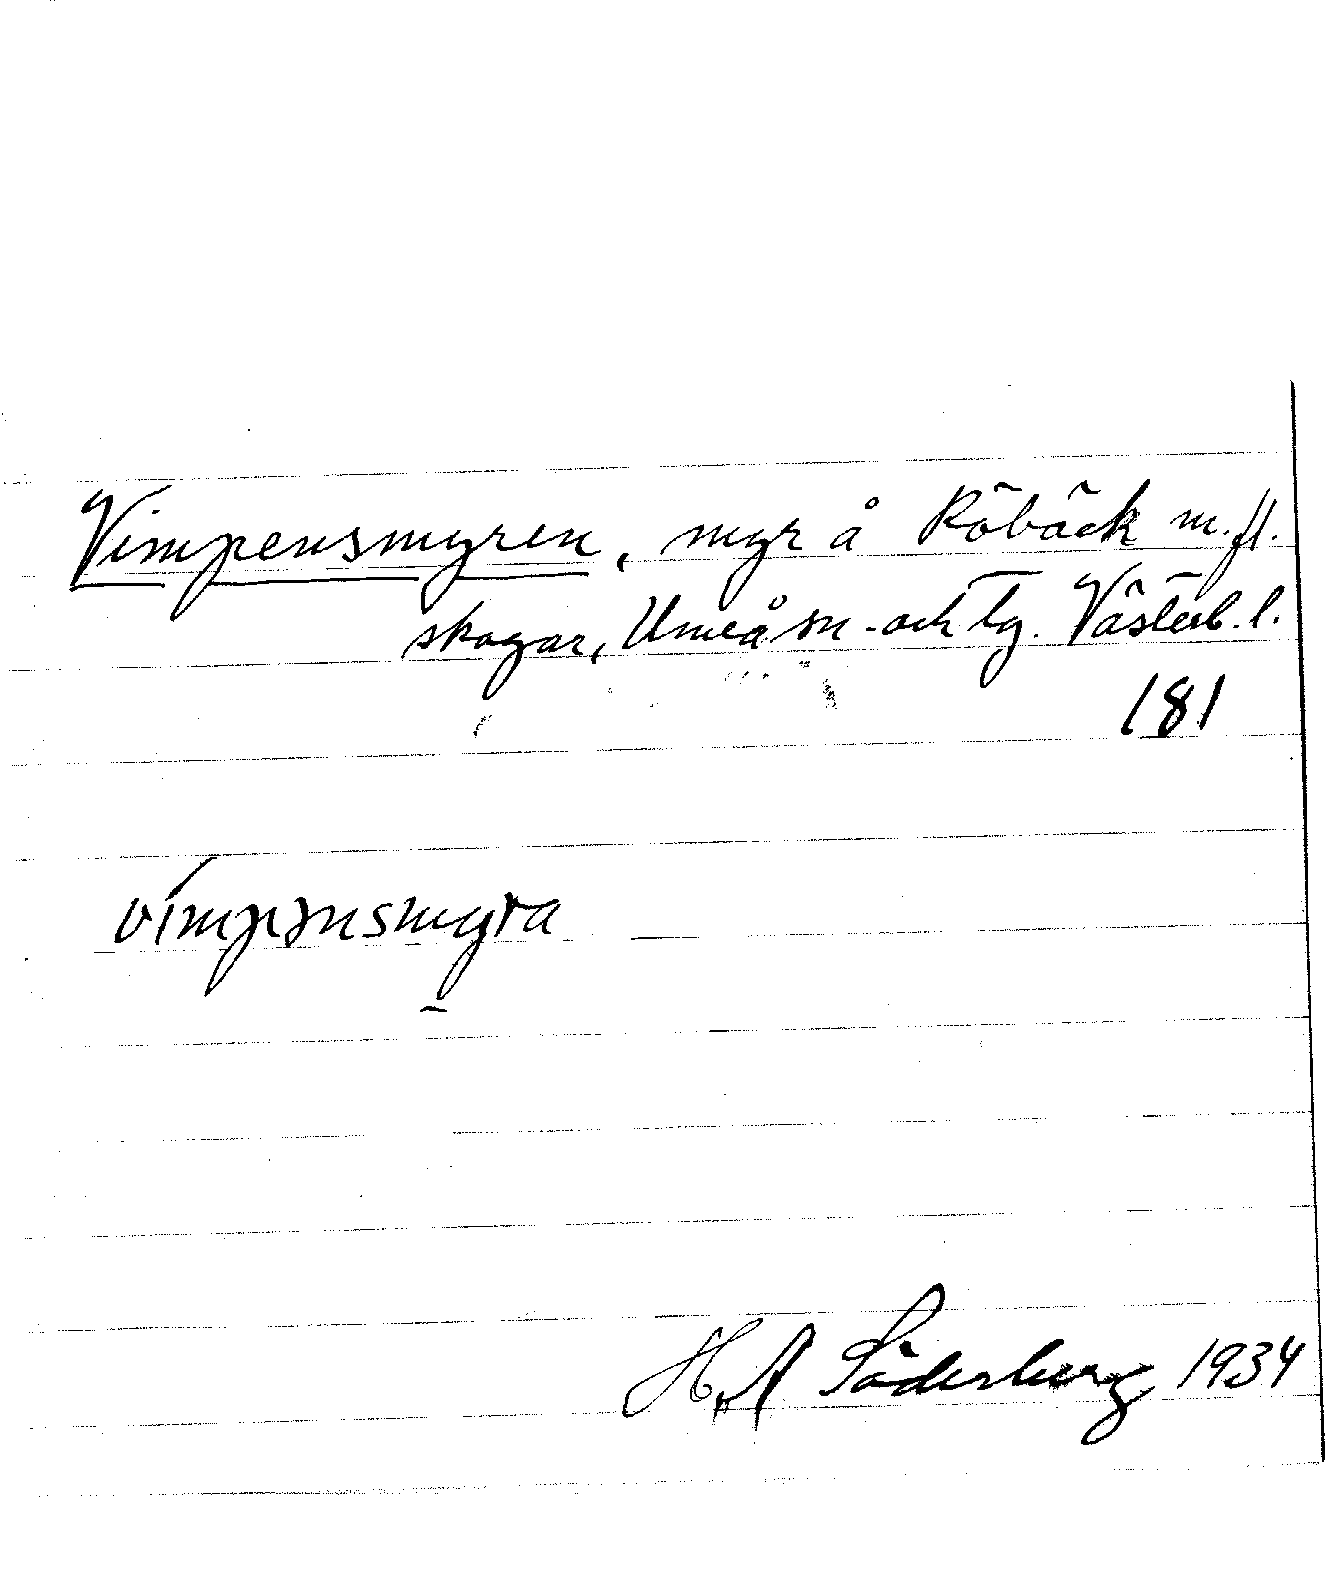 Vimpensmyren, myr å Röbäck m.fl.
skogar, Umeå sn. och tg. Västerb. l.
181
vímpənsmyra
H. A Söderberg 1934